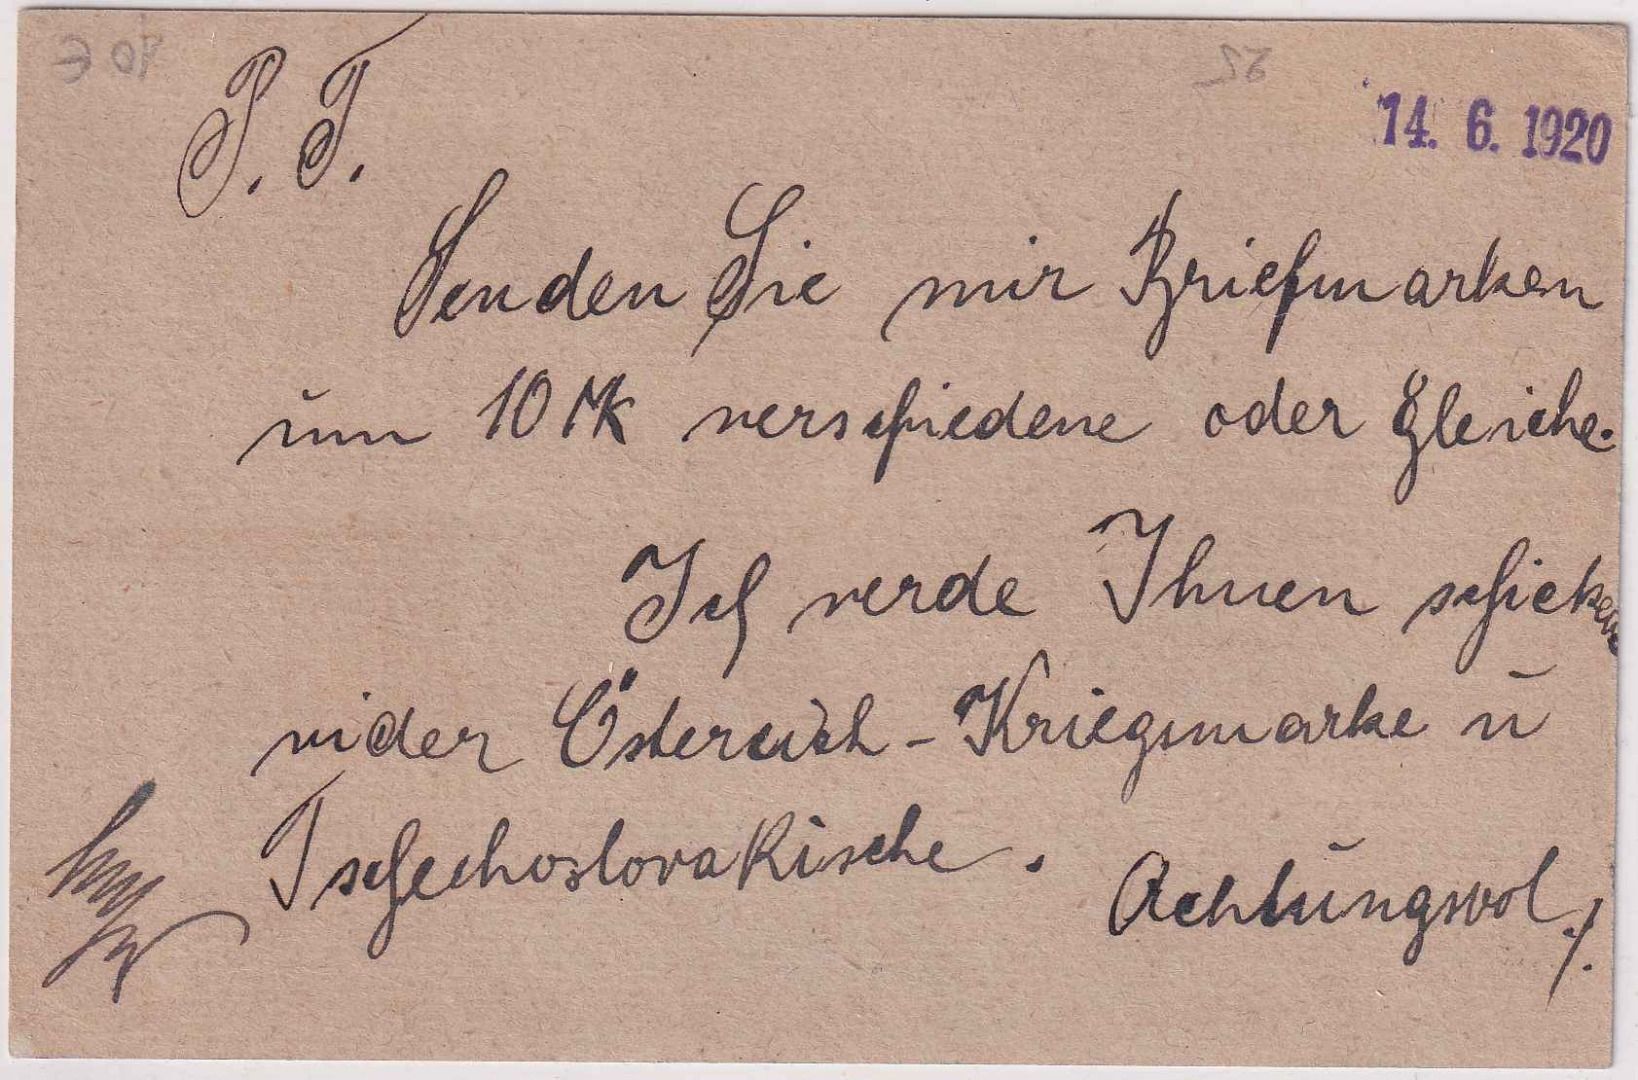 14. 6. 1920
P. T.
Senden Sie mir Briefmarken
um 10 Mk verschiedene oder gleiche.
Ich werde Ihnen schicken
wider Östereich - Kriegsmarke u
Tschechoslovakische.
Achtungsvol